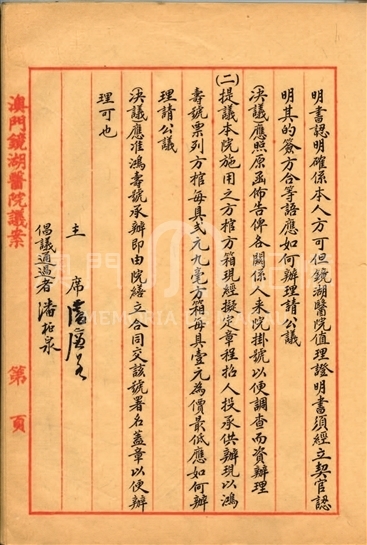 明書認明確係本人方可但鏡湖醫院值理證明書須經立契官認
明其的簽方合等語應如何辦理請公議
(決議)應照原函佈告俾各關係人来院掛號以便調查而資辦理
(二)提議本院施用之方棺方箱現經擬定章程招人投承供辦現以鴻
壽號票列方棺每具弍元九毫方箱每具壹元為價最低應如何辦
理請公議
(決議)應准鴻壽號承辦即由院繕立合同交該號署名蓋章以便辦
理可也
主席
倡議通過者 潘
澳門鏡湖醫院議案
第 頁